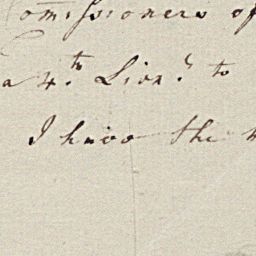 Comissioners of
a 4.th Lieu.t to
I know the